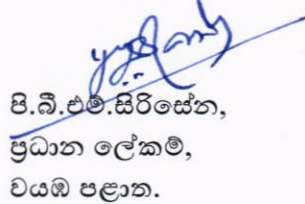 පි.බී.එම්.සිරිසේන,
ප්‍රධාන ලේකම්,
වයඹ පළාත.